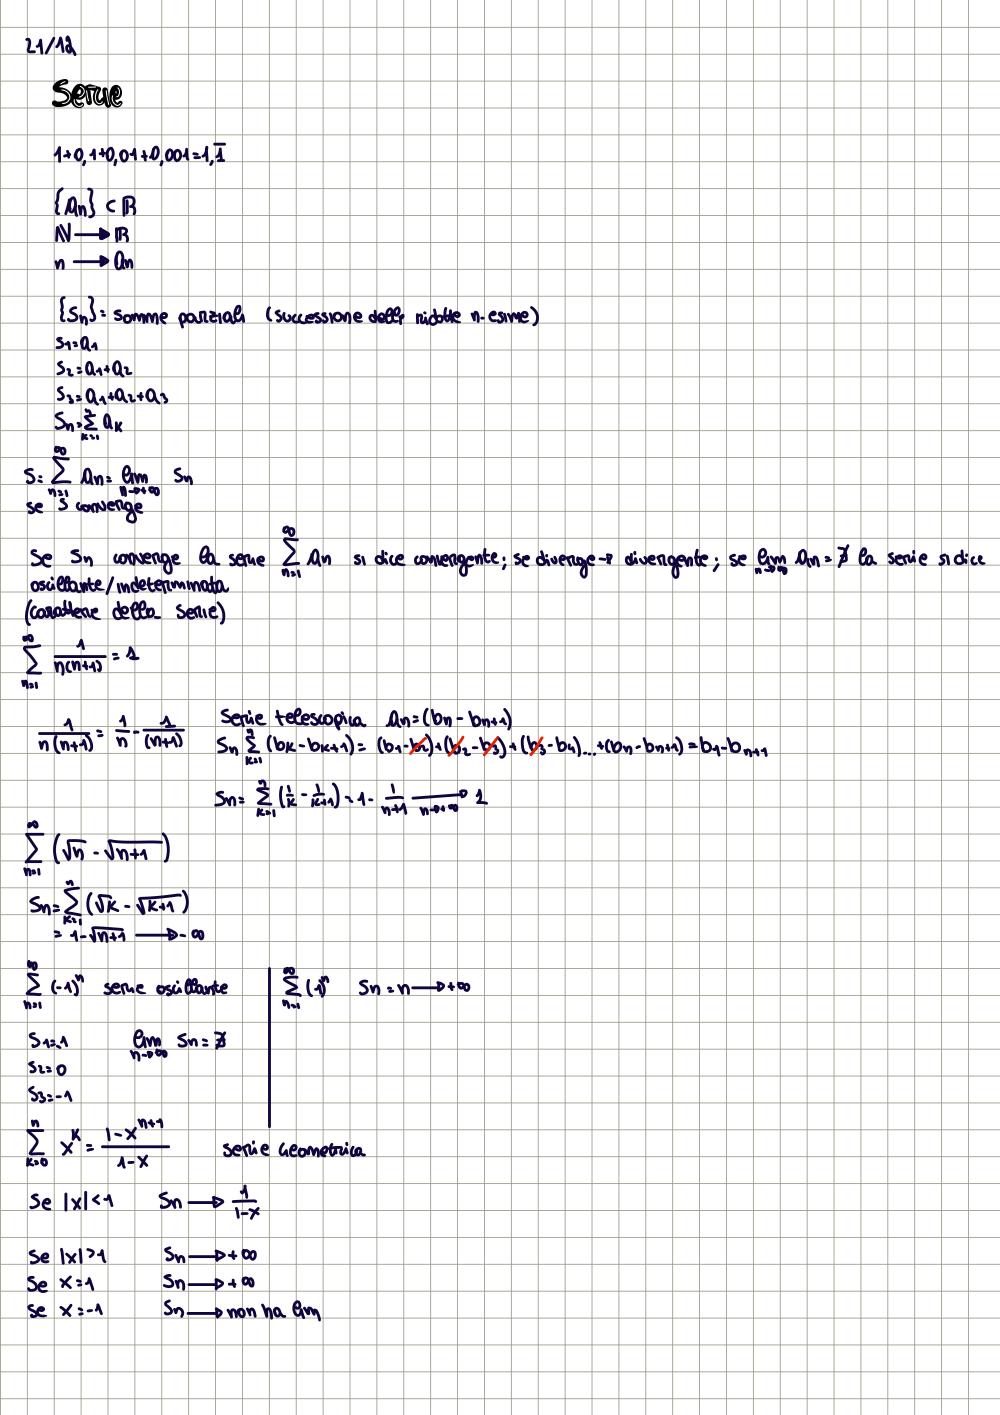 21/12
Serie
1+0,1+0,01+0,001=1,1̅
{an} ⊂ ℝ
ℕ ⟶ ℝ
n ⟶ an
{Sn} = somme parziali (successione delle ridotte n-esime)
S1=a1
S2=a1+a2
S3=a1+a2+a3
Sn=∑_{k=1}^{n} ak
S=∑_{n=1}^{∞} an= lim_{n→+∞} Sn
se S converge
Se Sn converge la serie ∑_{n=1}^{∞} an si dice convergente; se diverge → divergente; se lim_{n→∞} an = ∄ la serie si dice
oscillante/indeterminata
(carattere della serie)
∑_{n=1}^{∞} 1/(n(n+1)) = 1
1/(n(n+1)) = 1/n - 1/(n+1) Serie telescopica an=(bn-bn+1)
Sn ∑_{k=1}^{n} (bk-bk+1) = (b1-b2)+(b2-b3)+(b3-b4)...+(bn-bn+1) = b1-bn+1
Sn= ∑_{k=1}^{n} (1/k - 1/(k+1)) = 1 - 1/(n+1) ⟶_{n→+∞} 1
∑_{n=1}^{∞} (√n - √(n+1))
Sn=∑_{k=1}^{n} (√k - √(k+1))
= 1-√(n+1) ⟶ -∞
∑_{n=1}^{∞} (-1)^n serie oscillante
S1=1 lim_{n→∞} Sn = ∄
S2=0
S3=-1
∑_{n=1}^{∞} (-1)^n Sn = n ⟶ +∞
∑_{k=0}^{n} x^k = (1-x^{n+1})/(1-x) serie Geometrica
Se |x|<1 Sn ⟶ 1/(1-x)
Se |x|>1 Sn ⟶ +∞
Se x=1 Sn ⟶ +∞
Se x=-1 Sn ⟶ non ha lim